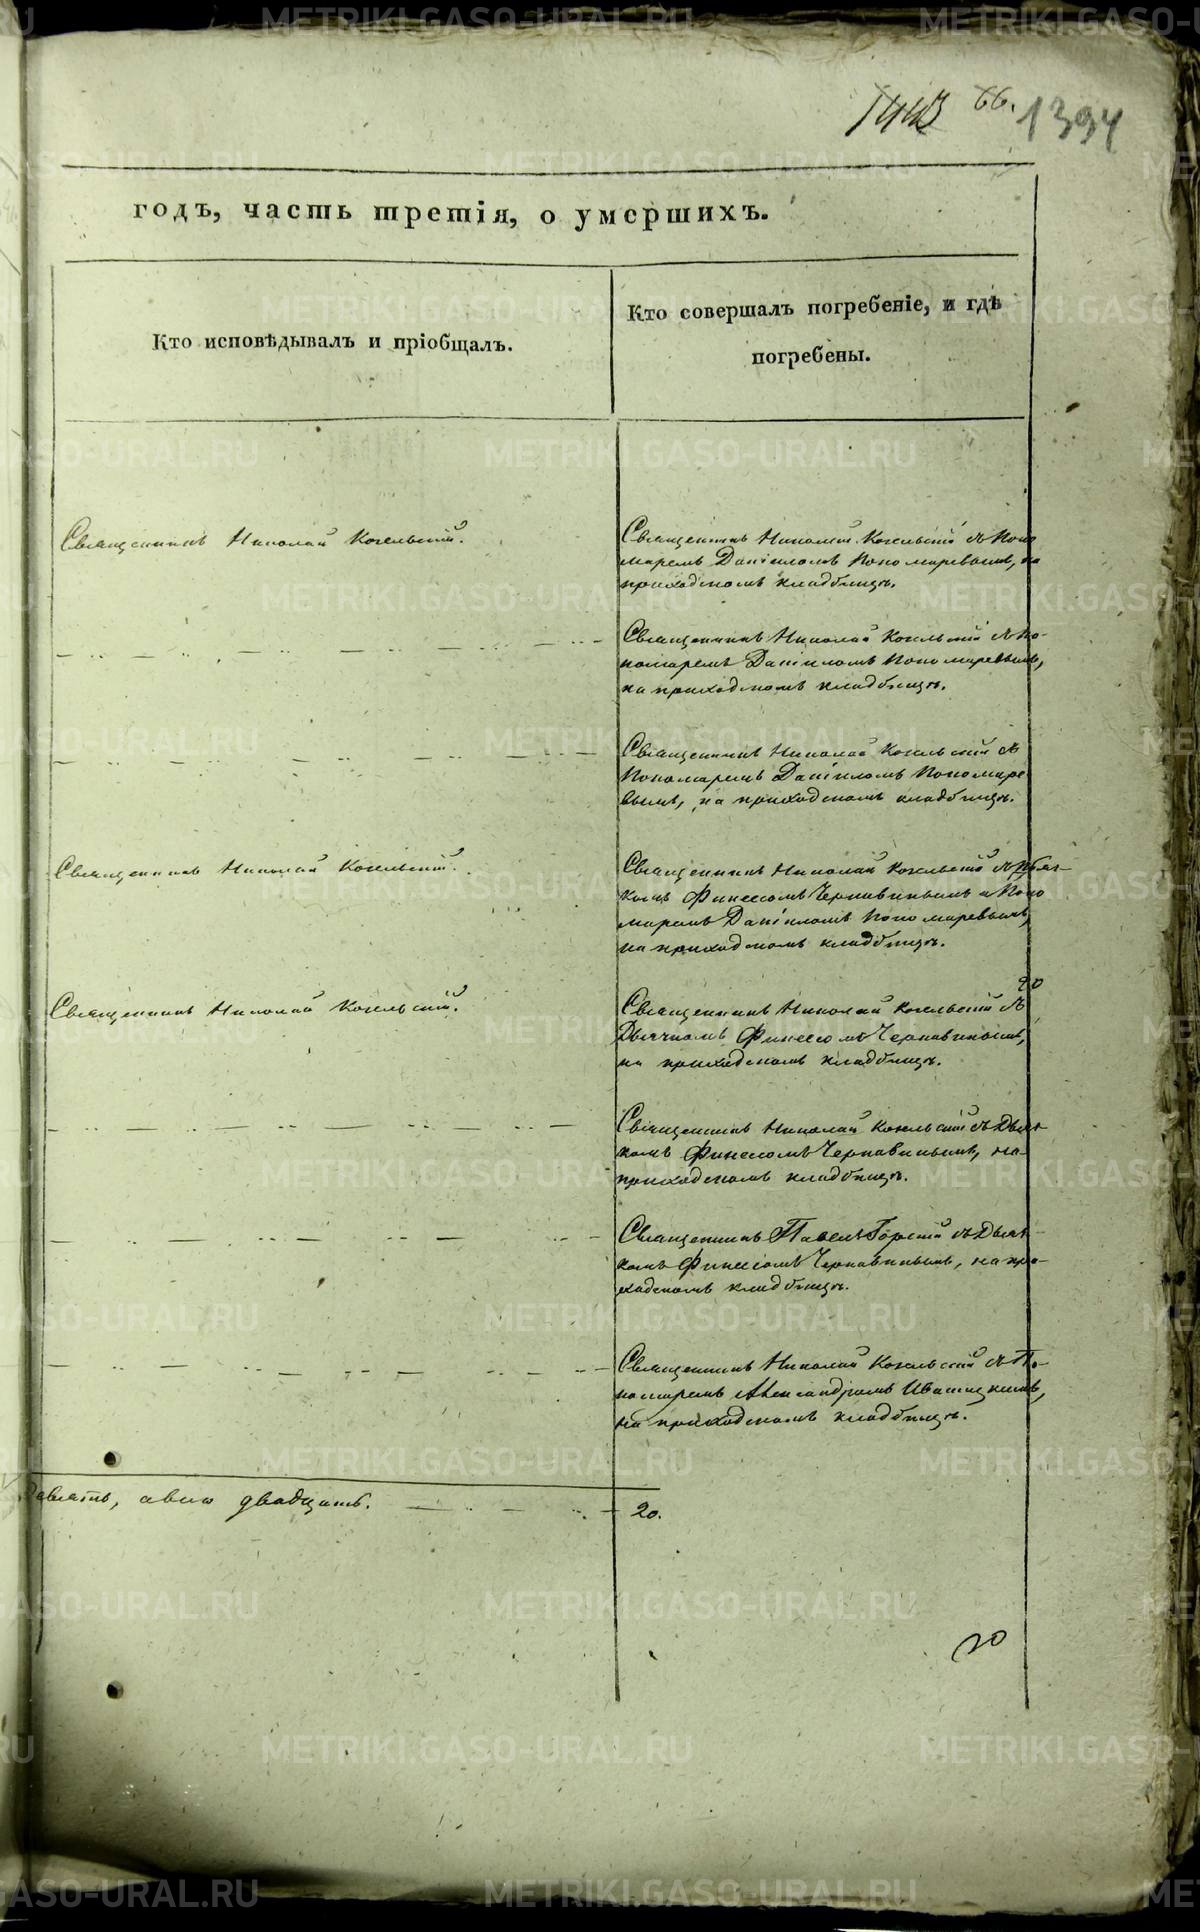 1443 66. 1394
годъ, часть третія, о умершихъ.
Кто исповѣдывалъ и пріобщалъ.
Кто совершалъ погребеніе, и гдѣ
погребены.
Священникъ Николай Когельскій.
Священникъ Николай Когельскій съ Поно
маремъ Даніиломъ Пономаревымъ, на
приходскомъ кладбищѣ.
Священникъ Николай Когельскій съ По-
номаремъ Даніиломъ Пономаревымъ,
на приходскомъ кладбищѣ.
Священникъ Николай Когельскій съ
Пономаремъ Даніиломъ Пономаре
вымъ, на приходскомъ кладбищѣ.
Священникъ Николай Когельскій.
Священникъ Николай Когельскій съ Дьяч-
комъ Финеесомъ Чернавинымъ и Поно
маремъ Даніиломъ Пономаревымъ,
на приходскомъ кладбищѣ.
Священникъ Николай Когельскій.
20
Священникъ Николай Когельскій съ
Дьячкомъ Финеесомъ Чернавинымъ,
на приходскомъ кладбищѣ.
Священникъ Николай Когельскій съ Дьяч-
комъ Финеесомъ Чернавинымъ, на
приходскомъ кладбищѣ.
Священникъ Павелъ Горскій съ Дьяч-
комъ Финеесомъ Чернавинымъ, на при-
ходскомъ кладбищѣ.
Священникъ Николай Когельскій съ По-
номаремъ Александромъ
на приходскомъ кладбищѣ.
девять, а всего двадцать. 20.
20
METRIKI.GASO-URAL.RU